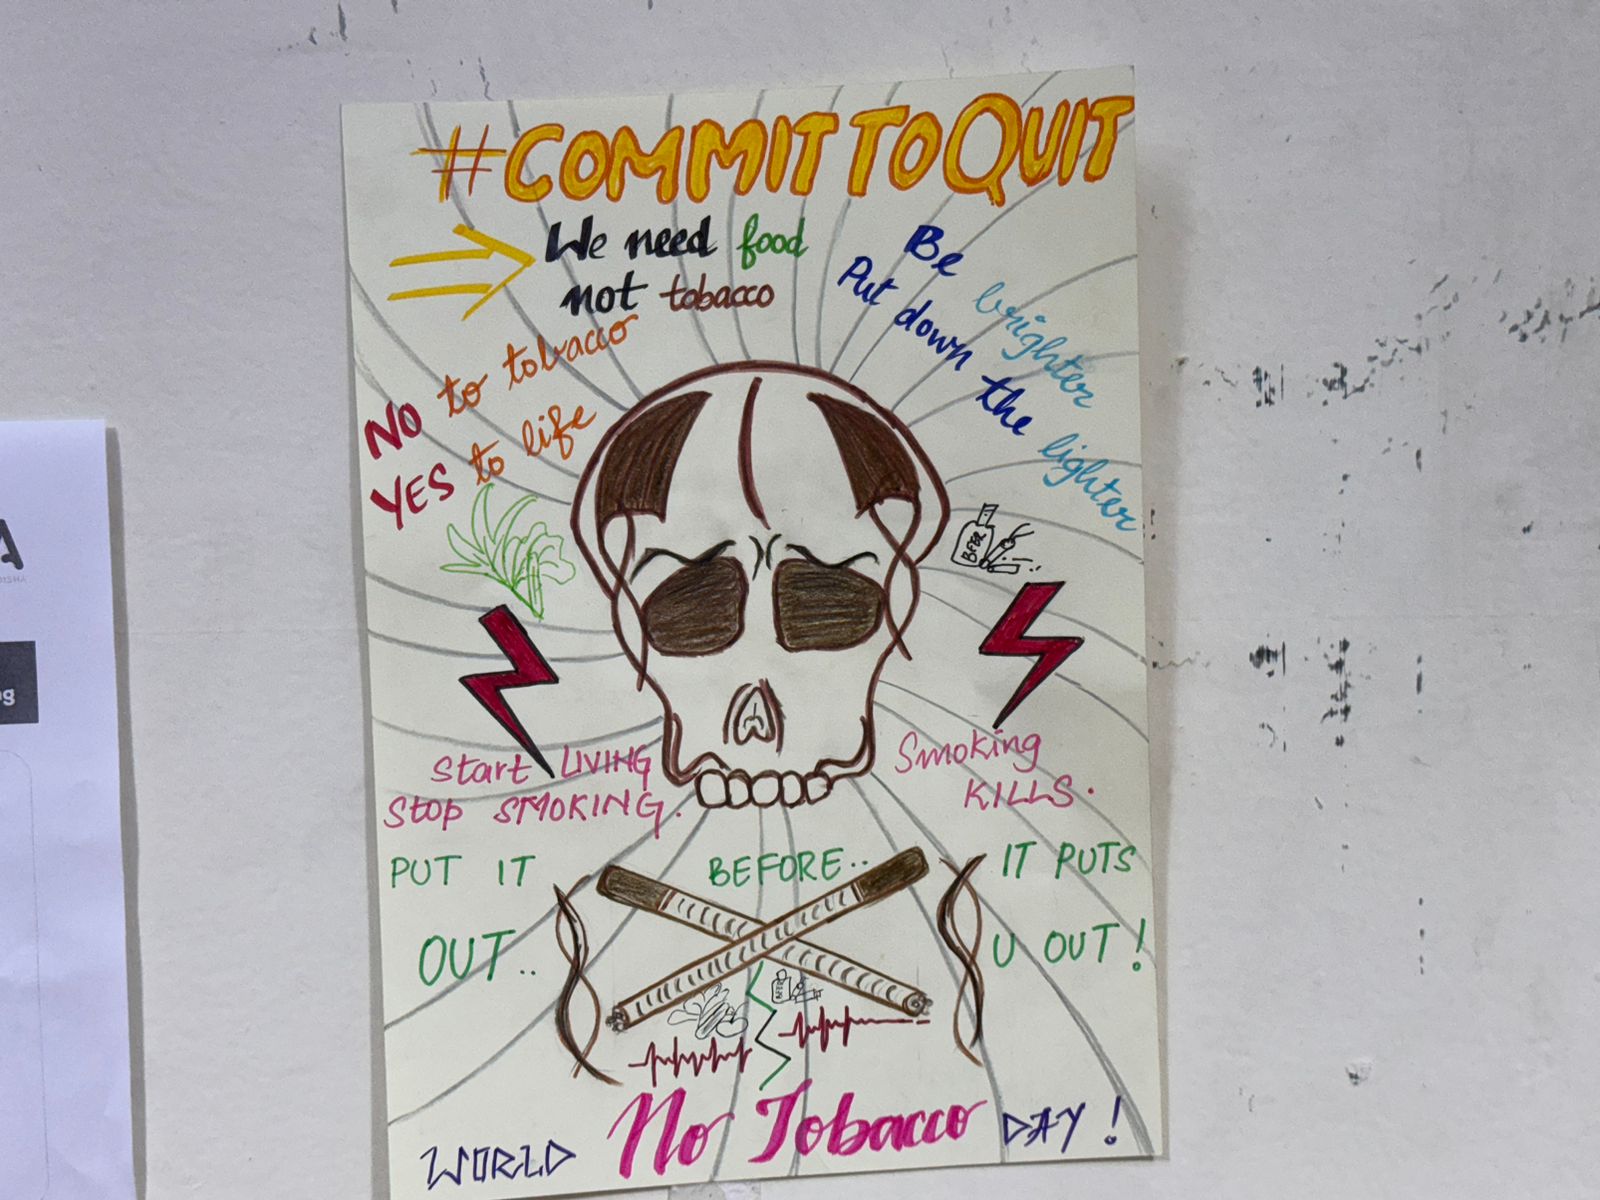 #COMMIT TO QUIT
We need food
not tobacco
Be brighter
Put down the lighter
NO to tobacco
YES to life
BEER
Start LIVING
Stop SMOKING.
Smoking
KILLS.
PUT IT
OUT..
BEFORE..
IT PUTS
U OUT!
BEER
WORLD No Tobacco DAY!
A
DISHA
og